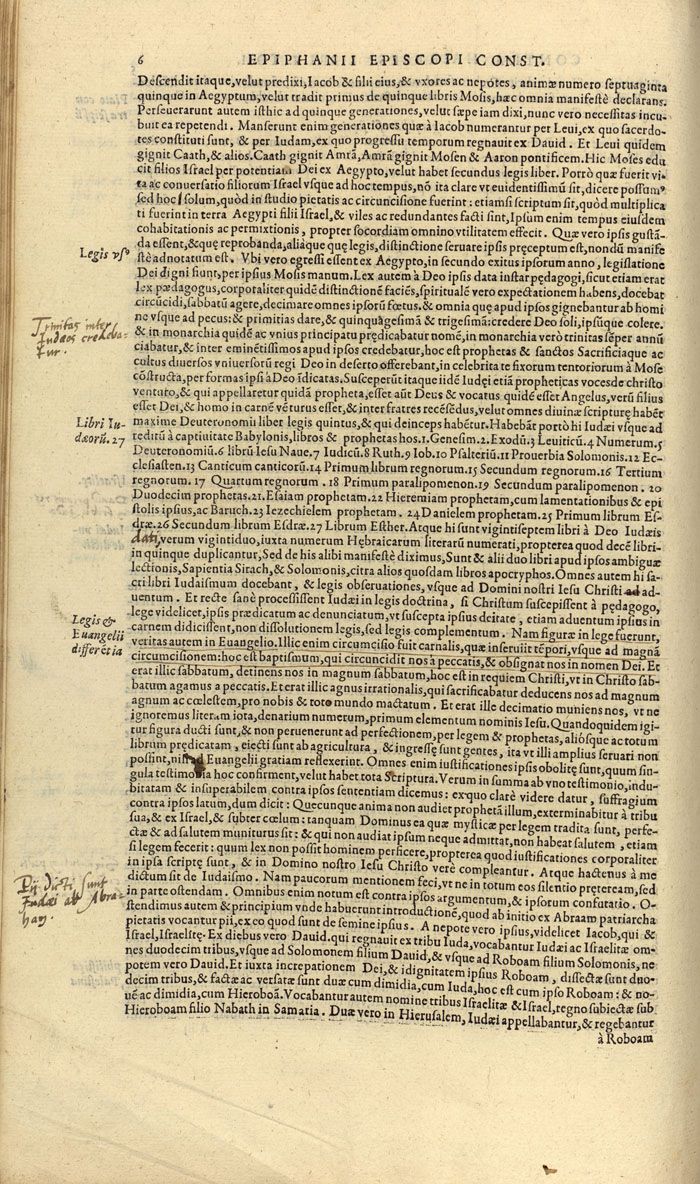 6 EPIPHANII EPISCOPI CONST.
Descendit itaque,velut predixi,Iacob & filii eius,& vxores ac nepotes, animæ numero septuaginta
quinque in Aegyptum,velut tradit primus de quinque libris Mosis,hæc omnia manifestè declarans.
Perseuerarunt autem isthic ad quinque generationes,velut sæpe iam dixi,nunc vero necessitas incu-
buit ea repetendi. Manserunt enim generationes quæ à Iacob numerantur per Leui,ex quo sacerdo-
tes constituti sunt, & per Iudam,ex quo progressu temporum regnauit ex Dauid. Et Leui quidem
gignit Caath,& alios.Caath gignit Amrã,Amrã gignit Mosen & Aaron pontificem.Hic Moses edu
cit filios Israel per potentiam Dei ex Aegypto,velut habet secundus legis liber. Porrò quæ fuerit vi-
ta ac conuersatio filiorum Israel vsque ad hoc tempus,nõ ita clare vt euidentissimũ sit,dicere possumꝰ
sed hoc solum,quòd in studio pietatis ac circuncisione fuerint: etiamsi scriptum sit,quòd multiplica
ti fuerint in terra Aegypti filii Israel,& viles ac redundantes facti sint,Ipsum enim tempus eiusdem
cohabitationis ac permixtionis, propter socordiam omnino vtilitatem effecit. Quæ vero ipsis gustã-
da essent,&quę reprobanda,aliaque quę legis,distinctione seruare ipsis pręceptum est,nondũ manife
Legis vsꝰ
stè adnotatum est. Vbi vero egressi essent ex Aegypto,in secundo exitus ipsorum anno, legislatione
Dei digni fiunt,per ipsius Mosis manum.Lex autem à Deo ipsis data instar pędagogi,sicut etiam erat
lex pædagogus,corporaliter quidẽ distinctionẽ faciẽs,spiritualẽ vero expectationem habens,docebat
circũcidi,sabbatũ agere,decimare omnes ipsorũ fœtus.& omnia quę apud ipsos gignebantur ab homi
ne vsque ad pecus:& primitias dare,& quinquagesimã & trigesimã:credere Deo soli,ipsũque colere.
Trinitas inter
Iudæos credeba-
tur.
& in monarchia quidẽ ac vnius principatu prędicabatur nomẽ,in monarchia verò trinitas sẽper annũ
ciabatur,& inter eminẽtissimos apud ipsos credebatur,hoc est prophetas & sanctos Sacrificiaque ac
cultus diuersos vniuersorũ regi Deo in deserto offerebant,in celebrita te fixorum tentoriorum à Mose
cõstructa,per formas ipsi à Deo ĩdicatas.Susceperũt itaque iidẽ Iudęi etiã propheticas voces de christo
venturo,& qui appellaretur quidã propheta,esset aũt Deus & vocatus quidẽ esset Angelus,verũ filius
esset Dei,& homo in carnẽ vẽturus esset,& inter fratres recẽsẽdus,velut omnes diuinæ scripturę habẽt
Libri Iu-
dæorũ. 27
maxime Deuteronomii liber legis quintus,& qui deinceps habẽtur.Habebãt portò hi Iudæi vsque ad
reditũ à captiuitate Babylonis,libros & prophetas hos.1.Genesim.2.Exodũ.3 Leuiticũ.4 Numerum.5
Deuteronomiũ.6 librũ Iesu Naue.7 Iudicũ.8 Ruth.9 Iob.10 Psalteriũ.11 Prouerbia Solomonis.12 Ec-
clesiasten.13 Canticum canticorũ.14 Primum librum regnorum.15 Secundum regnorum.16 Tertium
regnorum. 17 Quartum regnorum .18 Primum paralipomenon.19 Secundum paralipomenon. 20
Duodecim prophetas.21.Esaiam prophetam.22 Hieremiam prophetam,cum lamentationibus & epi
stolis ipsius,ac Baruch.23 Iezechielem prophetam. 24 Danielem prophetam.25 Primum librum Es-
dræ.26 Secundum librum Esdræ.27 Librum Esther.Atque hi sunt vigintiseptem libri à Deo Iudæis
dati,verum vigintiduo,iuxta numerum Hebraicarum literarũ numerati,propterea quod decẽ libri-
in quinque duplicantur,Sed de his alibi manifestè diximus,Sunt & alii duo libri apud ipsos ambiguæ
lectionis,Sapientia Sirach,& Solomonis,citra alios quosdam libros apocryphos.Omnes autem hi sa-
cri libri Iudaismum docebant, & legis obseruationes,vsque ad Domini nostri Iesu Christi ad-
uentum. Et recte sanè processissent Iudæi in legis doctrina, si Christum suscepissent à pędagogo,
lege videlicet,ipsis prædicatum ac denunciatum,vt suscepta ipsius deitate, etiam aduentum ipsius in
Legis &
Euangelii
differẽtia
carnem didicissent,non dissolutionem legis,sed legis complementum. Nam figuræ in lege fuerunt,
veritas autem in Euangelio.Illic enim circumcisio fuit carnalis,quæ inseruiit tẽpori,vsque ad magnã
circumcisionem:hoc est baptismum,qui circuncidit nos à peccatis,& obsignat nos in nomen Dei. Et
erat illic sabbatum, detinens nos in magnum sabbatum,hoc est in requiem Christi,vt in Christo sab-
batum agamus a peccatis.Et erat illic agnus irrationalis,qui sacrificabatur deducens nos ad magnum
agnum ac cœlestem,pro nobis & toto mundo mactatum. Et erat ille decimatio muniens nos, vt ne
ignoremus literam iota,denarium numerum,primum elementum nominis Iesu.Quandoquidem igi-
tur figura ducti sunt,& non peruenerunt ad perfectionem,per legem & prophetas,aliósque ac totum
librum prędicatam , eiecti sunt ab agricultura , & ingressę sunt gentes, ita vt illi amplius seruari non
possint,nisi ad Euangelii gratiam reflexerint. Omnes enim iustificationes ipsis obolitę sunt,quum sin-
gula testimonia hoc confirment,velut habet tota Scriptura.Verum in summa ab vno testimonio,indu-
bitatam & insuperabilem contra ipsos sententiam dicemus: ex quo clarè videre datur, suffragium
contra ipsos latum,dum dicit: Quęcunque anima non audiet prophetã illum,exterminabitur à tribu
sua,& ex Israel,& subter cœlum: tanquam Dominus ea quæ mysticæ per legem tradita sunt, perfe-
ctæ & ad salutem muniturus sit: & qui non audiat ipsum neque admittat,non habeat salutem , etiam
si legem fecerit: quum lex non possit hominem perficere,propterea quod iustificationes corporaliter
in ipsa scriptę sunt, & in Domino nostro Iesu Christo verè compleantur. Atque hactenus à me
dictum sit de Iudaismo. Nam paucorum mentionem feci,vt ne in totum eos silentio pręteream,sed
Dij dicti sunt
Iudæi ab Abra-
ham.
in parte ostendam. Omnibus enim notum est contra ipsos argumentum,& ipsorum confutatio. O-
stendimus autem & principium vnde habuerunt introductionẽ,quod ab initio ex Abraam patriarcha
pietatis vocantur pii,ex eo quod sunt de semine ipsius. A nepote vero ipsius,videlicet Iacob,qui &
Israel,Israelitę. Ex diebus vero Dauid.qui regnauit ex tribu Iuda,vocabantur Iudæi ac Israelitæ om-
nes duodecim tribus,vsque ad Solomonem filium Dauid,& vsque ad Roboam filium Solomonis,ne
potem vero Dauid.Et iuxta increpationem Dei,& idignitatem ipsius Roboam, dissectæ sunt duo-
decim tribus,& factæ ac versatæ sunt duæ cum dimidia,cum Iuda,hoc est cum ipso Roboam: & no-
uẽ ac dimidia,cum Hieroboã.Vocabantur autem nomine tribus Israelitæ & Israel,regno subiectæ sub
Hieroboam filio Nabath in Samaria. Duæ vero in Hierusalem, Iudæi appellabantur,& regebantur
à Roboam